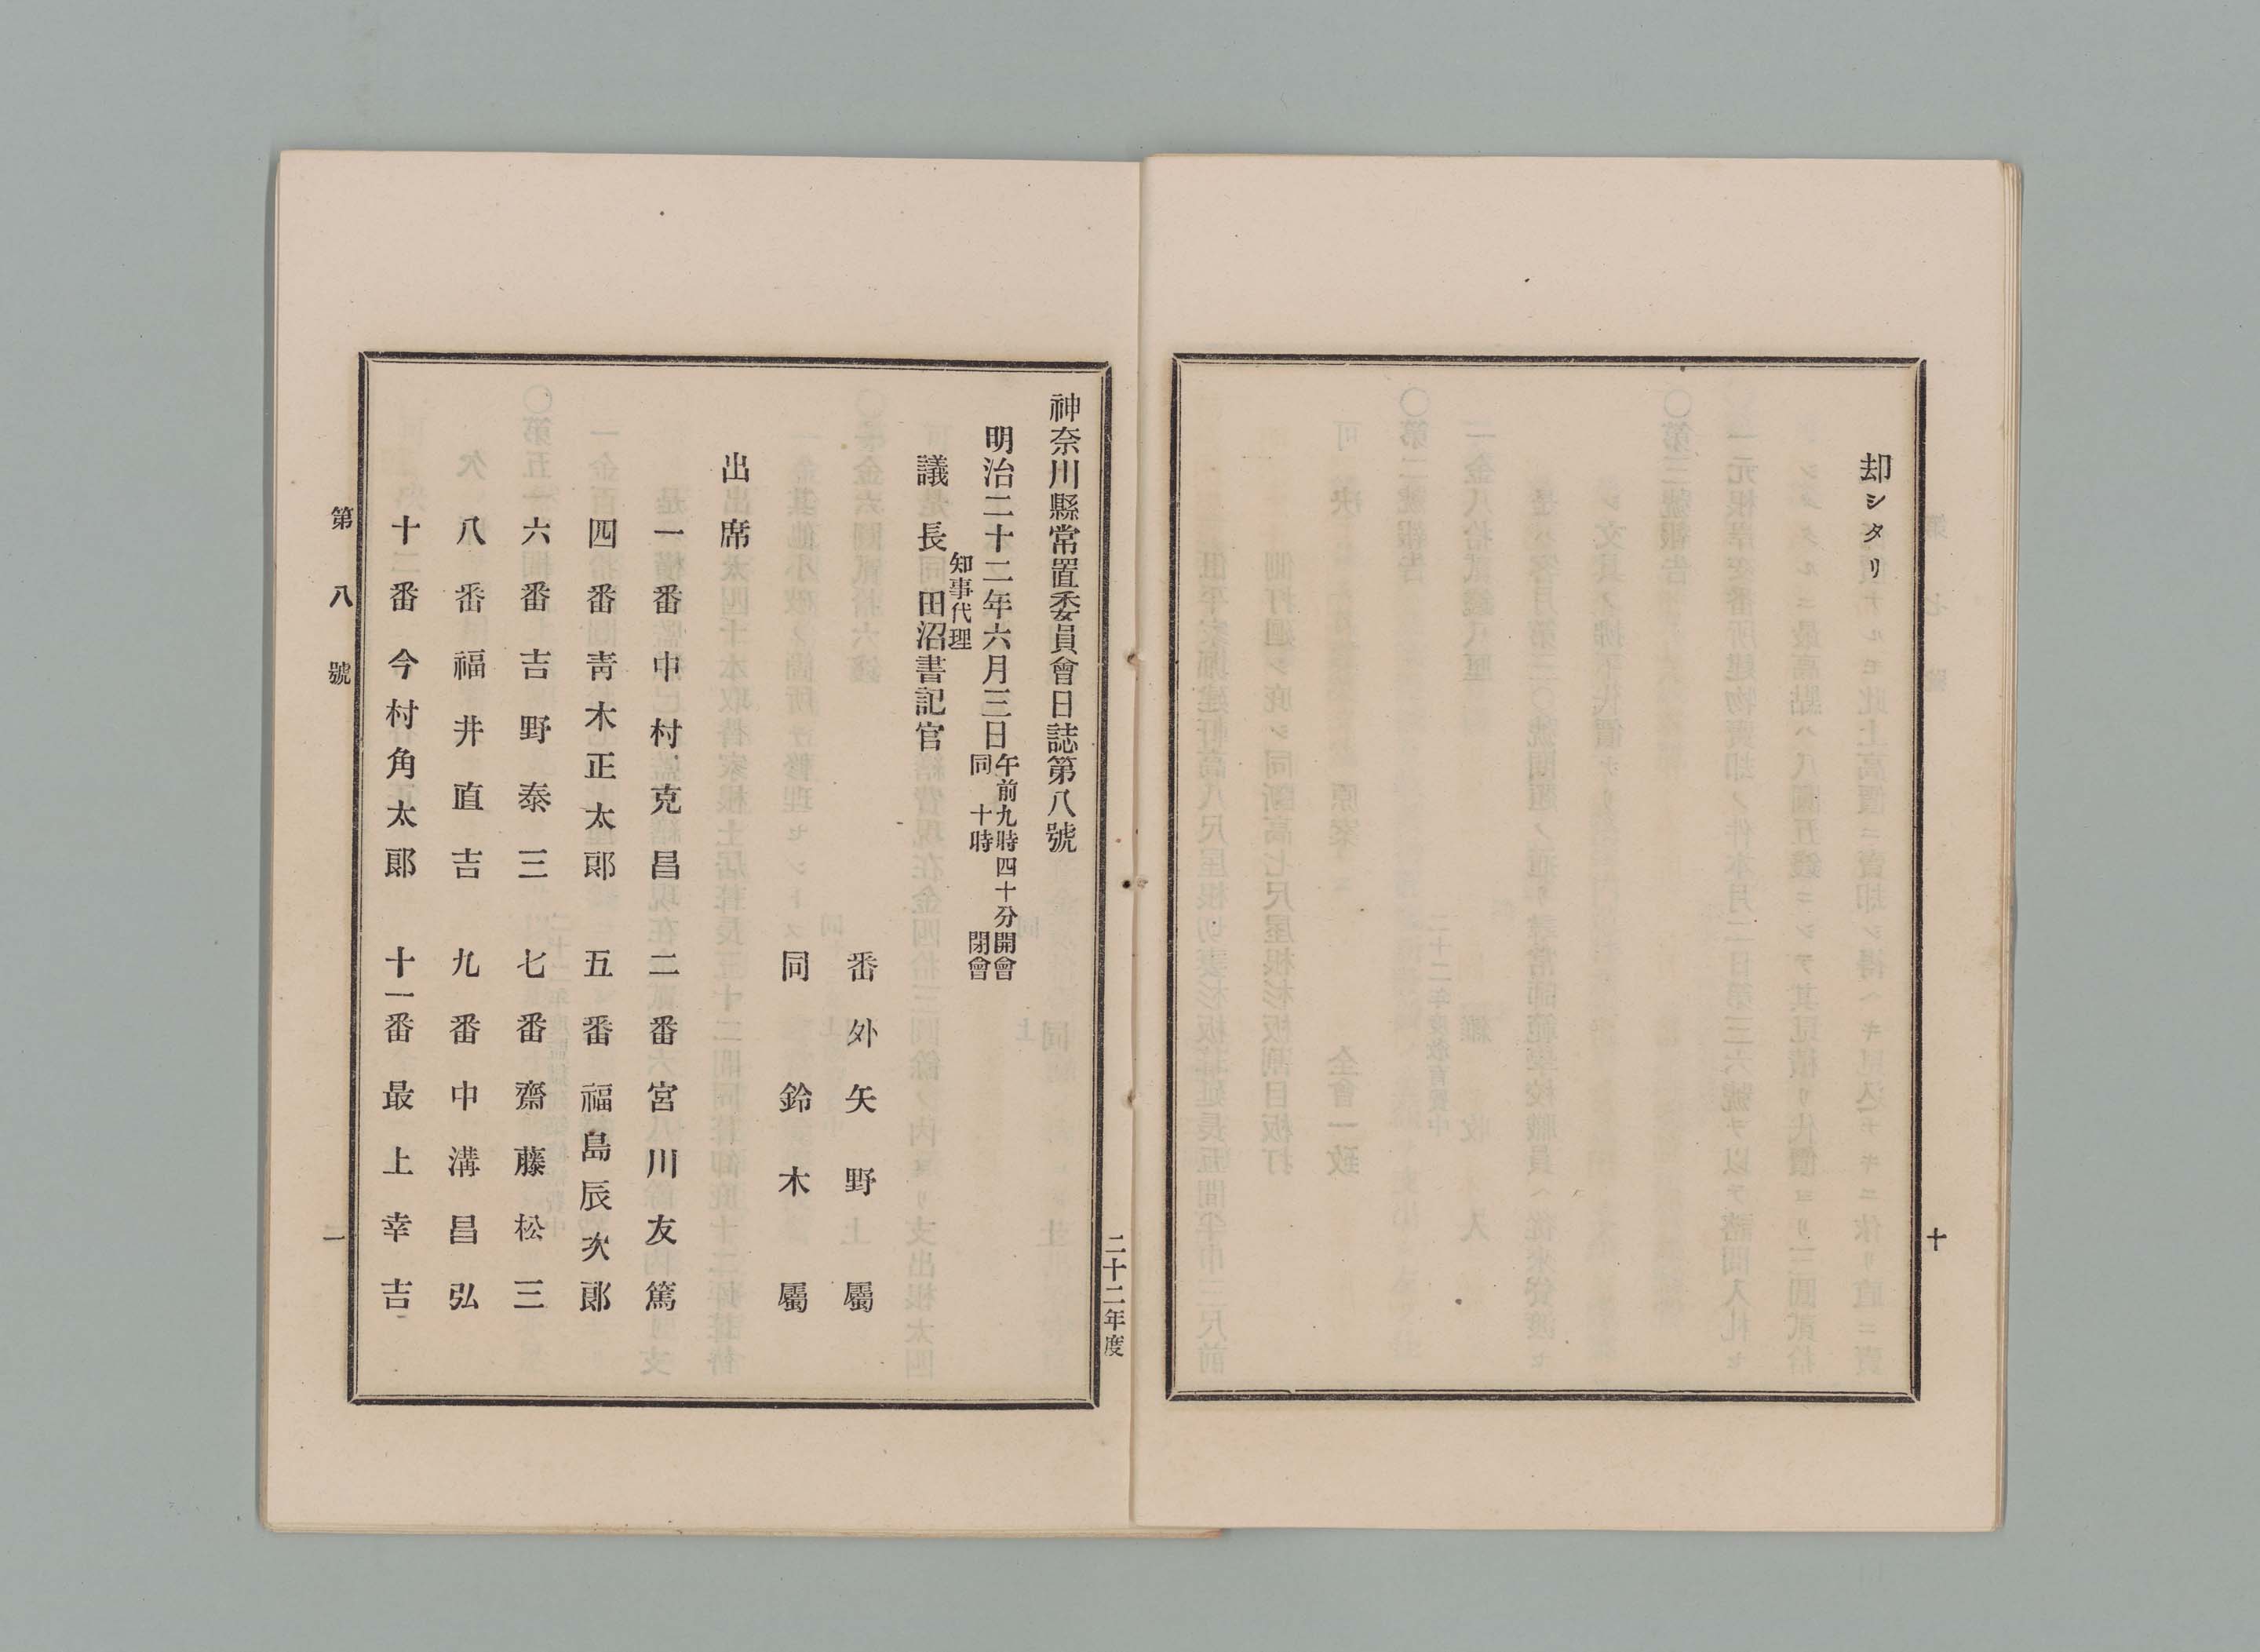 却シタリ
十
二十二年度
神奈川縣常置委員會日誌第八號
明治二十二年六月三日午前九時四十分開會
同十時閉會
知事代理
議長田沼書記官
番外矢野屬
同鈴木屬
出席
一番中村克昌 二番宮川友篤
四番靑木正太郞 五番福島辰次郞
六番吉野泰三 七番齋藤松三
八番福井直吉 九番中溝昌弘
十番今村角太郞 十一番最上幸吉
第八號
一